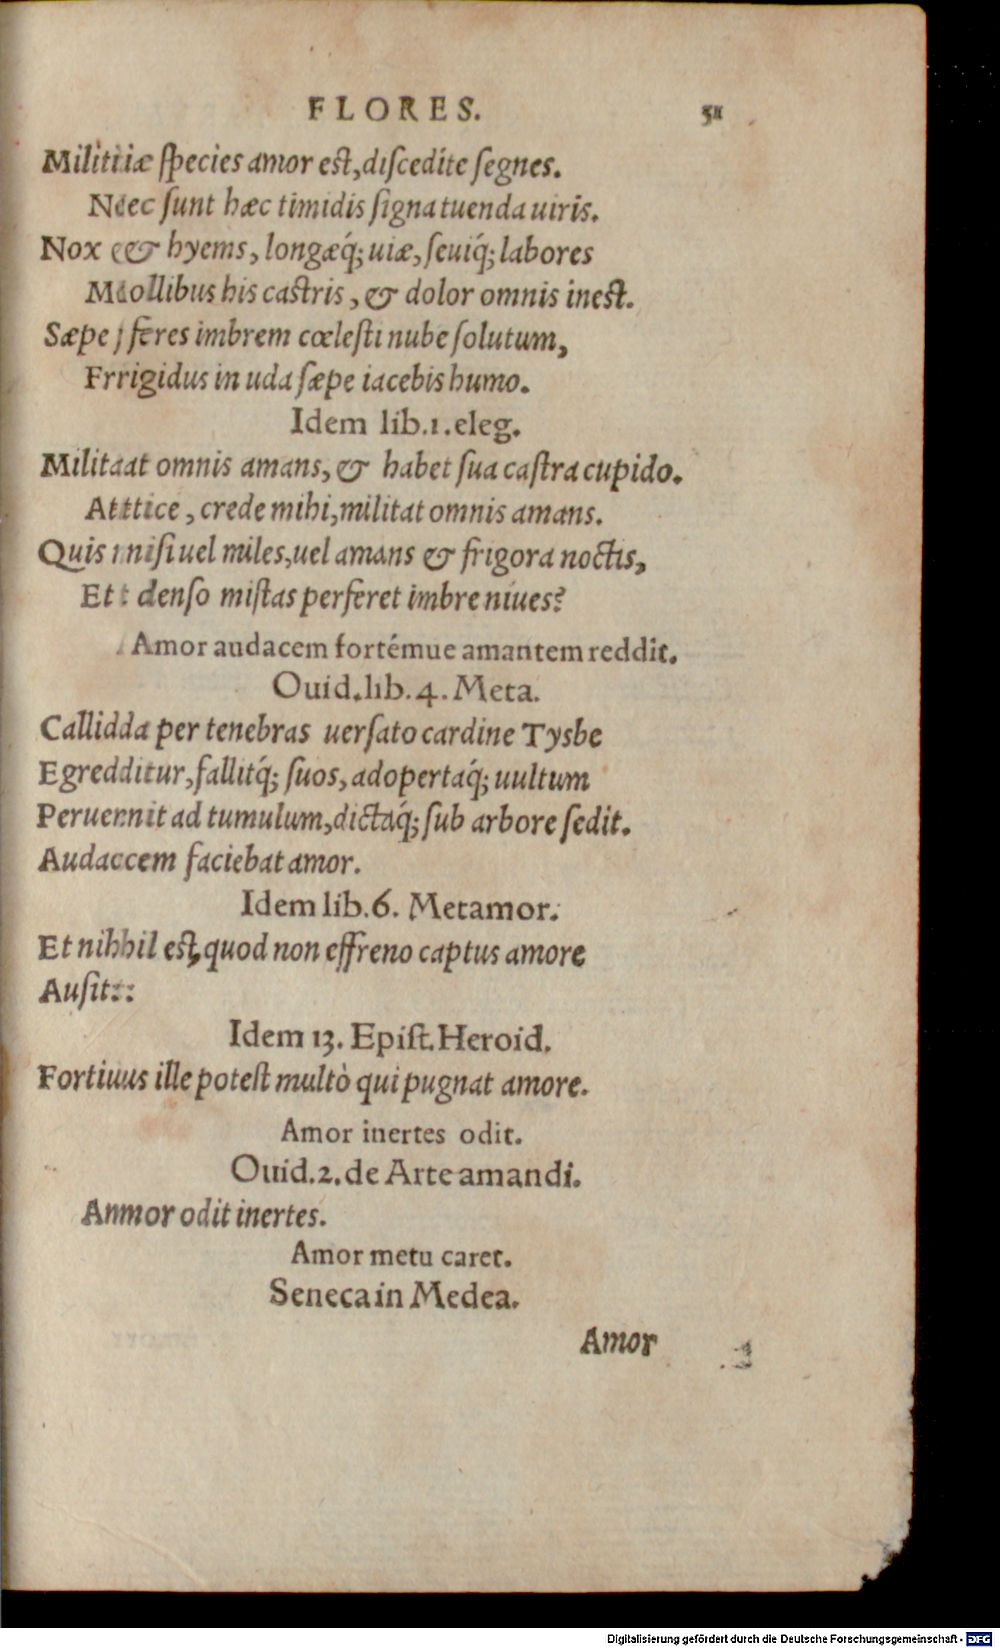 FLORES. 51
Militiæ species amor est, discedite segnes.
Nec sunt hæc timidis signa tuenda uiris.
Nox & hyems, longæq́; uiæ, seuiq́; labores
Mollibus his castris, & dolor omnis inest.
Sæpe feres imbrem cœlesti nube solutum,
Frigidus in uda sæpe iacebis humo.
Idem lib.1.eleg.
Militat omnis amans, & habet sua castra cupido.
Attice, crede mihi, militat omnis amans.
Quis nisi uel miles, uel amans & frigora noctis,
Et denso mistas perferet imbre niues?
Amor audacem fortémue amantem reddit.
Ouid.lib.4. Meta.
Callida per tenebras uersato cardine Tysbe
Egreditur, fallitq́; suos, adopertaq́; uultum
Peruenit ad tumulum, dictaq́; sub arbore sedit.
Audacem faciebat amor.
Idem lib.6. Metamor.
Et nihil est, quod non effreno captus amore
Ausit:
Idem 13. Epist. Heroid.
Fortius ille potest multò qui pugnat amore.
Amor inertes odit.
Ouid.2.de Arte amandi.
Amor odit inertes.
Amor metu caret.
Seneca in Medea.
Amor
Digitalisierung gefördert durch die Deutsche Forschungsgemeinschaft - DFG